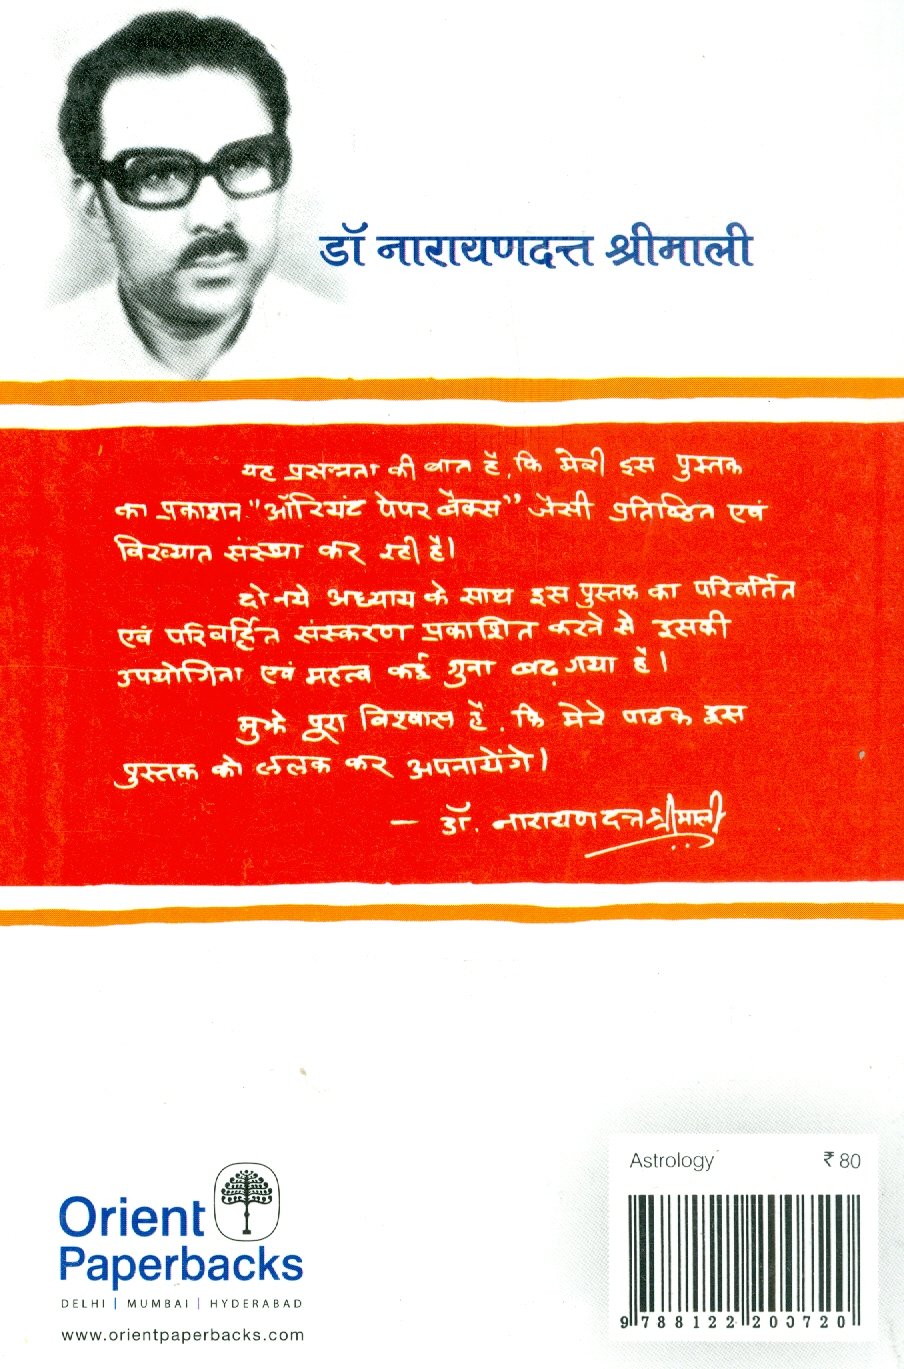 डॉ नारायणदत्त श्रीमाली
यह प्रसन्नता की बात है, कि मेरी इस पुस्तक
का प्रकाशन "ऑरियंट पेपर बैक्स" जैसी प्रतिष्ठित एवं
विख्यात संस्था कर रही है।
दो नये अध्याय के साथ इस पुस्तक का परिवर्तित
एवं परिवर्द्धित संस्करण प्रकाशित करने से इसकी
उपयोगिता एवं महत्व कई गुना बढ़ गया है।
मुझे पूरा विश्वास है, कि मेरे पाठक इस
पुस्तक को ललक कर अपनायेंगे।
— डॉ. नारायणदत्त श्रीमाली
Orient
Paperbacks
DELHI | MUMBAI | HYDERABAD
www.orientpaperbacks.com
Astrology ₹ 80
9 788122 200720